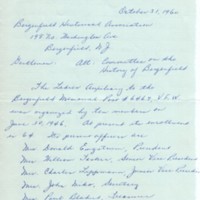 October 31, 1960
Bergenfield Historical Association
N. Washington Ave
Bergenfield, N.J.
Gentlemen: Att: Committee on the
History of Bergenfield
The Ladies Auxiliary to the
Bergenfield Memorial Post # 6467, V.F.W
was organized by ten members on
June 30, 1946. At present the enrollment
is 64. The present officers are
Mrs. President
Mrs. William Senior Vice President
Mrs. Charles Junior Vice President
Mrs. John Secretary
Mrs. Paul Treasurer